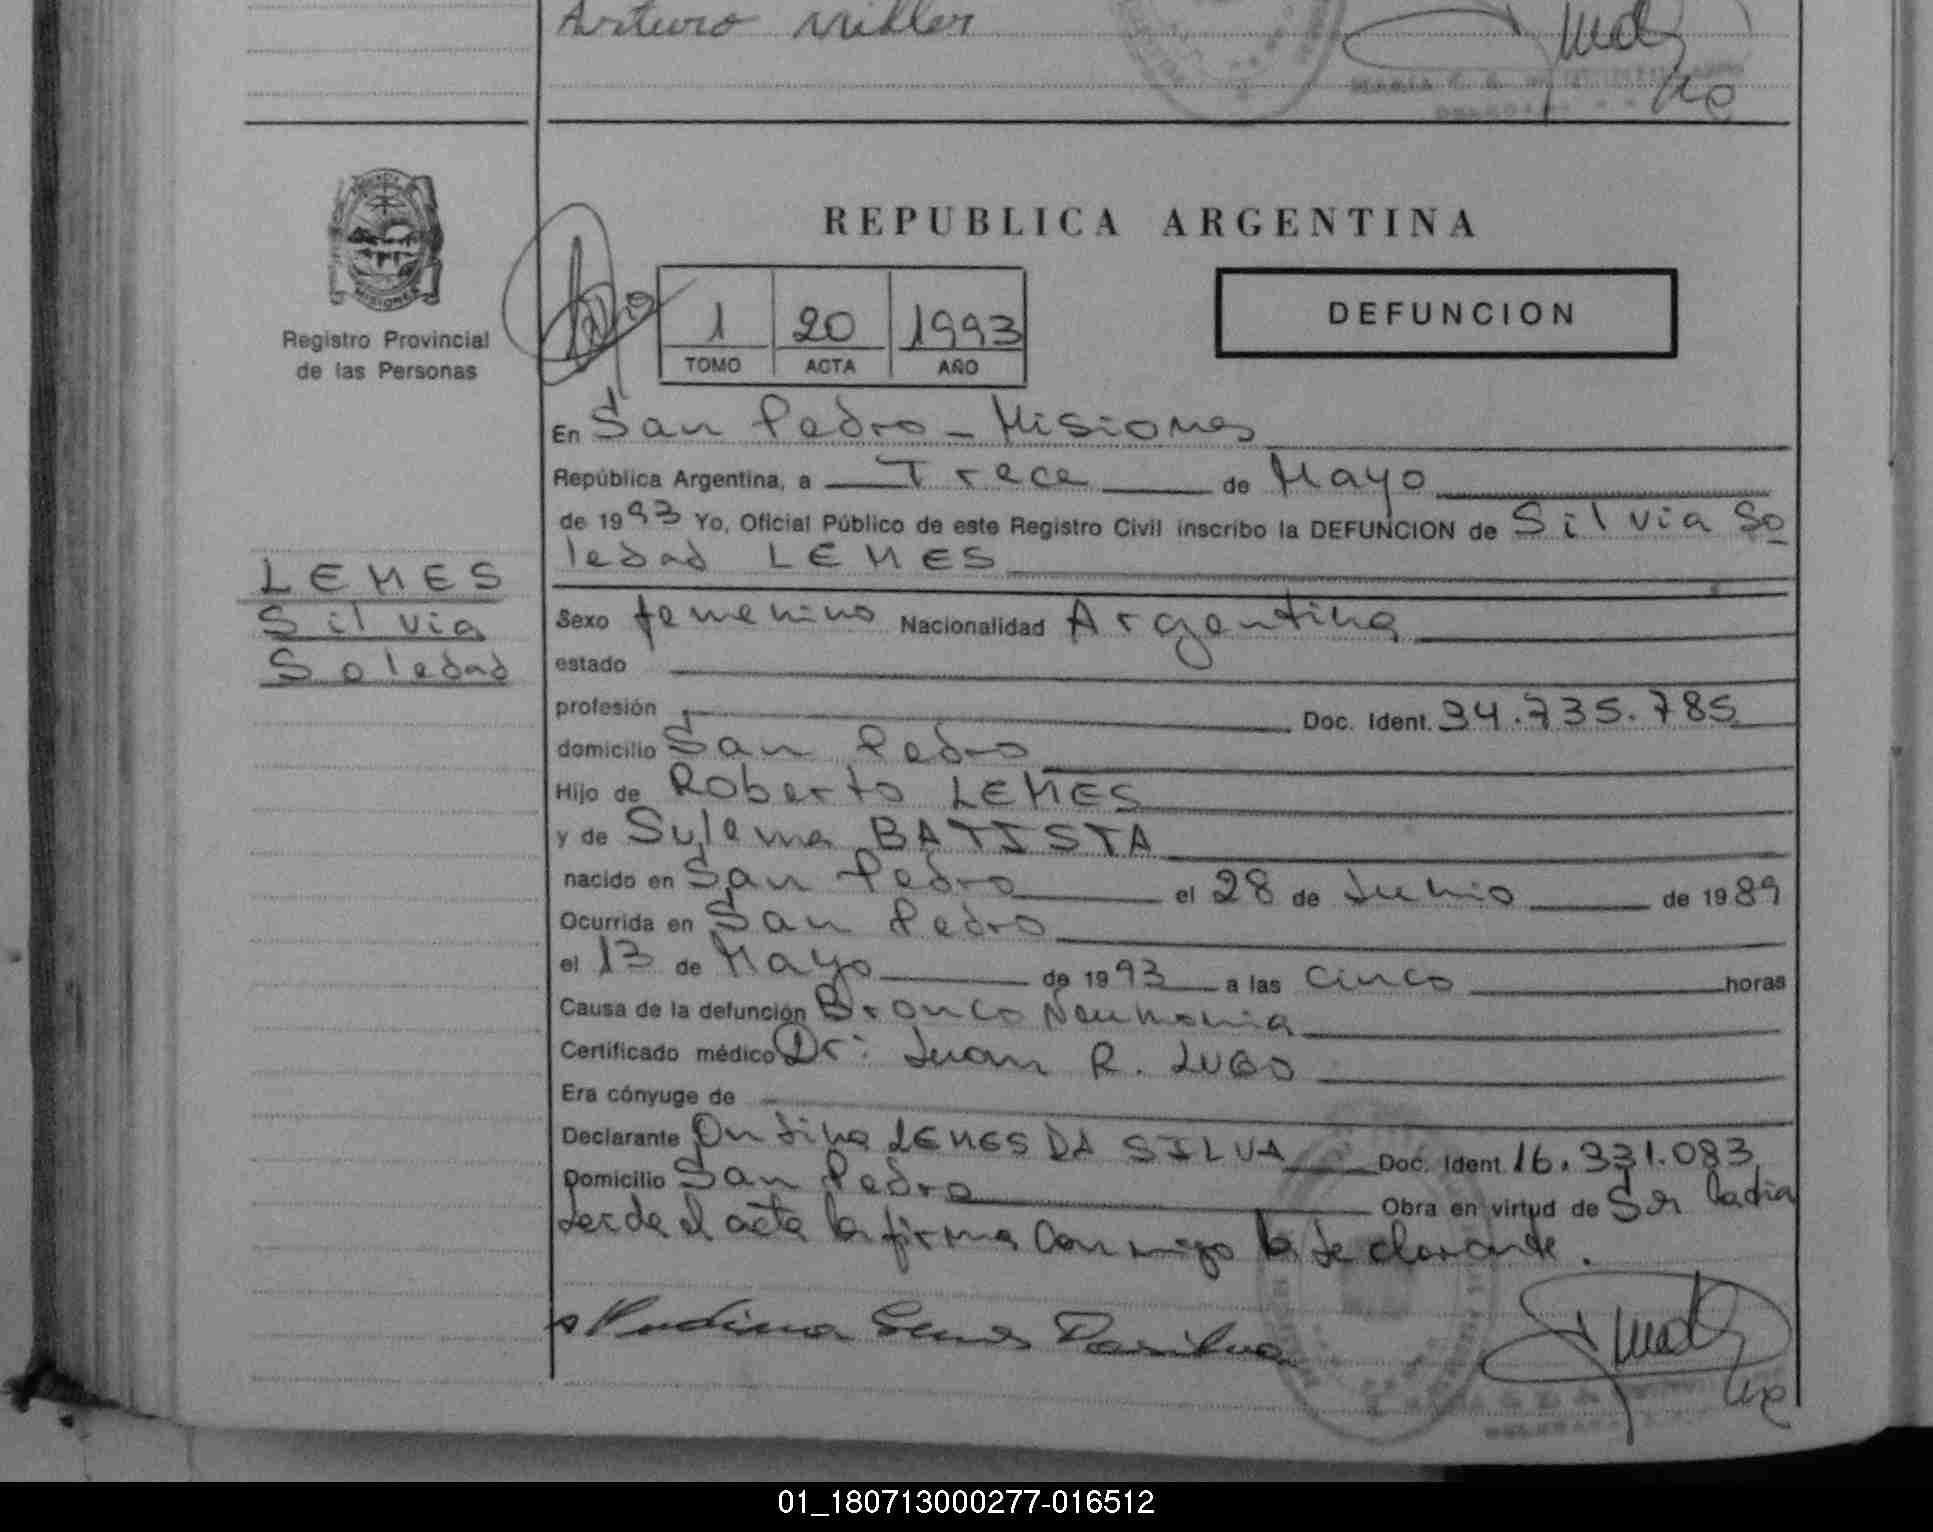 Arturo Miller
REPUBLICA ARGENTINA
Registro Provincial
de las Personas
1 20 1993
TOMO ACTA AÑO
DEFUNCION
En San Pedro - Misiones
República Argentina, a Trece de Mayo
de 1993 Yo, Oficial Público de este Registro Civil inscribo la DEFUNCION de Silvia So
ledad LEMES
LEMES
Silvia
Soledad
Sexo femenino Nacionalidad Argentina
estado
profesión Doc. Ident. 34.735.785
domicilio San Pedro
Hijo de Roberto LEMES
y de Sulema BATISTA
nacido en San Pedro el 28 de Junio de 1989
Ocurrida en San Pedro
el 13 de Mayo de 1993 a las cinco horas
Causa de la defunción Bronco Neumonia
Certificado médico Dr: Juan R. LUGO
Era cónyuge de
Declarante LEMES DA SILVA Doc. Ident. 16.331.083
Domicilio San Pedro Obra en virtud de Ser
el acta la firma Conmigo la declarante.
Lemes Dasilva
01_180713000277-016512